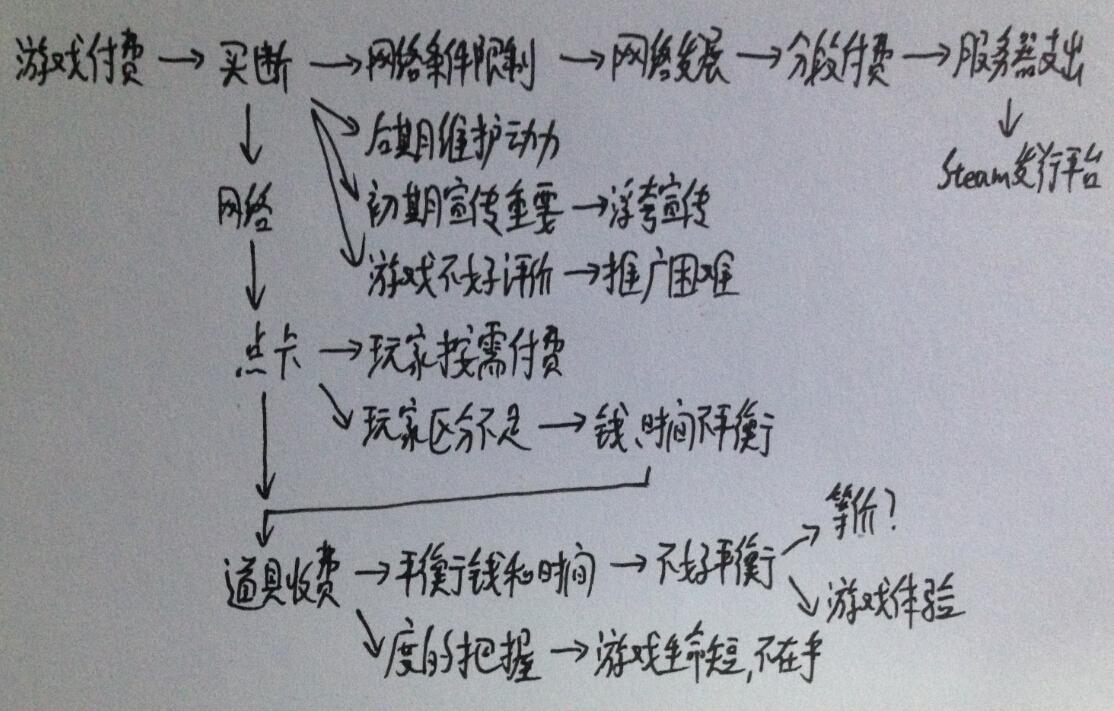 游戏付费 → 买断 → 网络条件限制 → 网络发展 → 分段付费 → 服务器支出
后期维护动力
Steam发行平台
网络
初期宣传重要 → 浮夸宣传
游戏不好评价 → 推广困难
点卡 → 玩家按需付费
玩家区分不足 → 钱、时间不平衡
等价?
道具收费 → 平衡钱和时间 → 不好平衡
游戏体验
度的把握 → 游戏生命短,不在乎